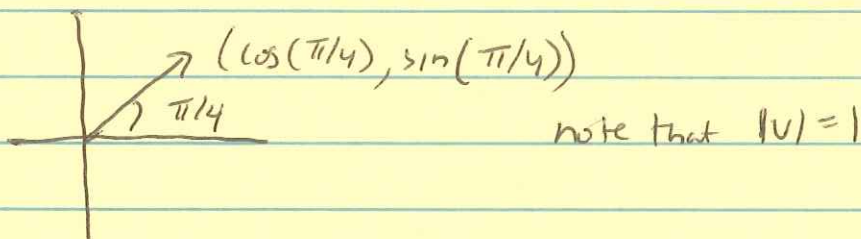 (cos(π/4), sin(π/4))
π/4
note that |v| = 1